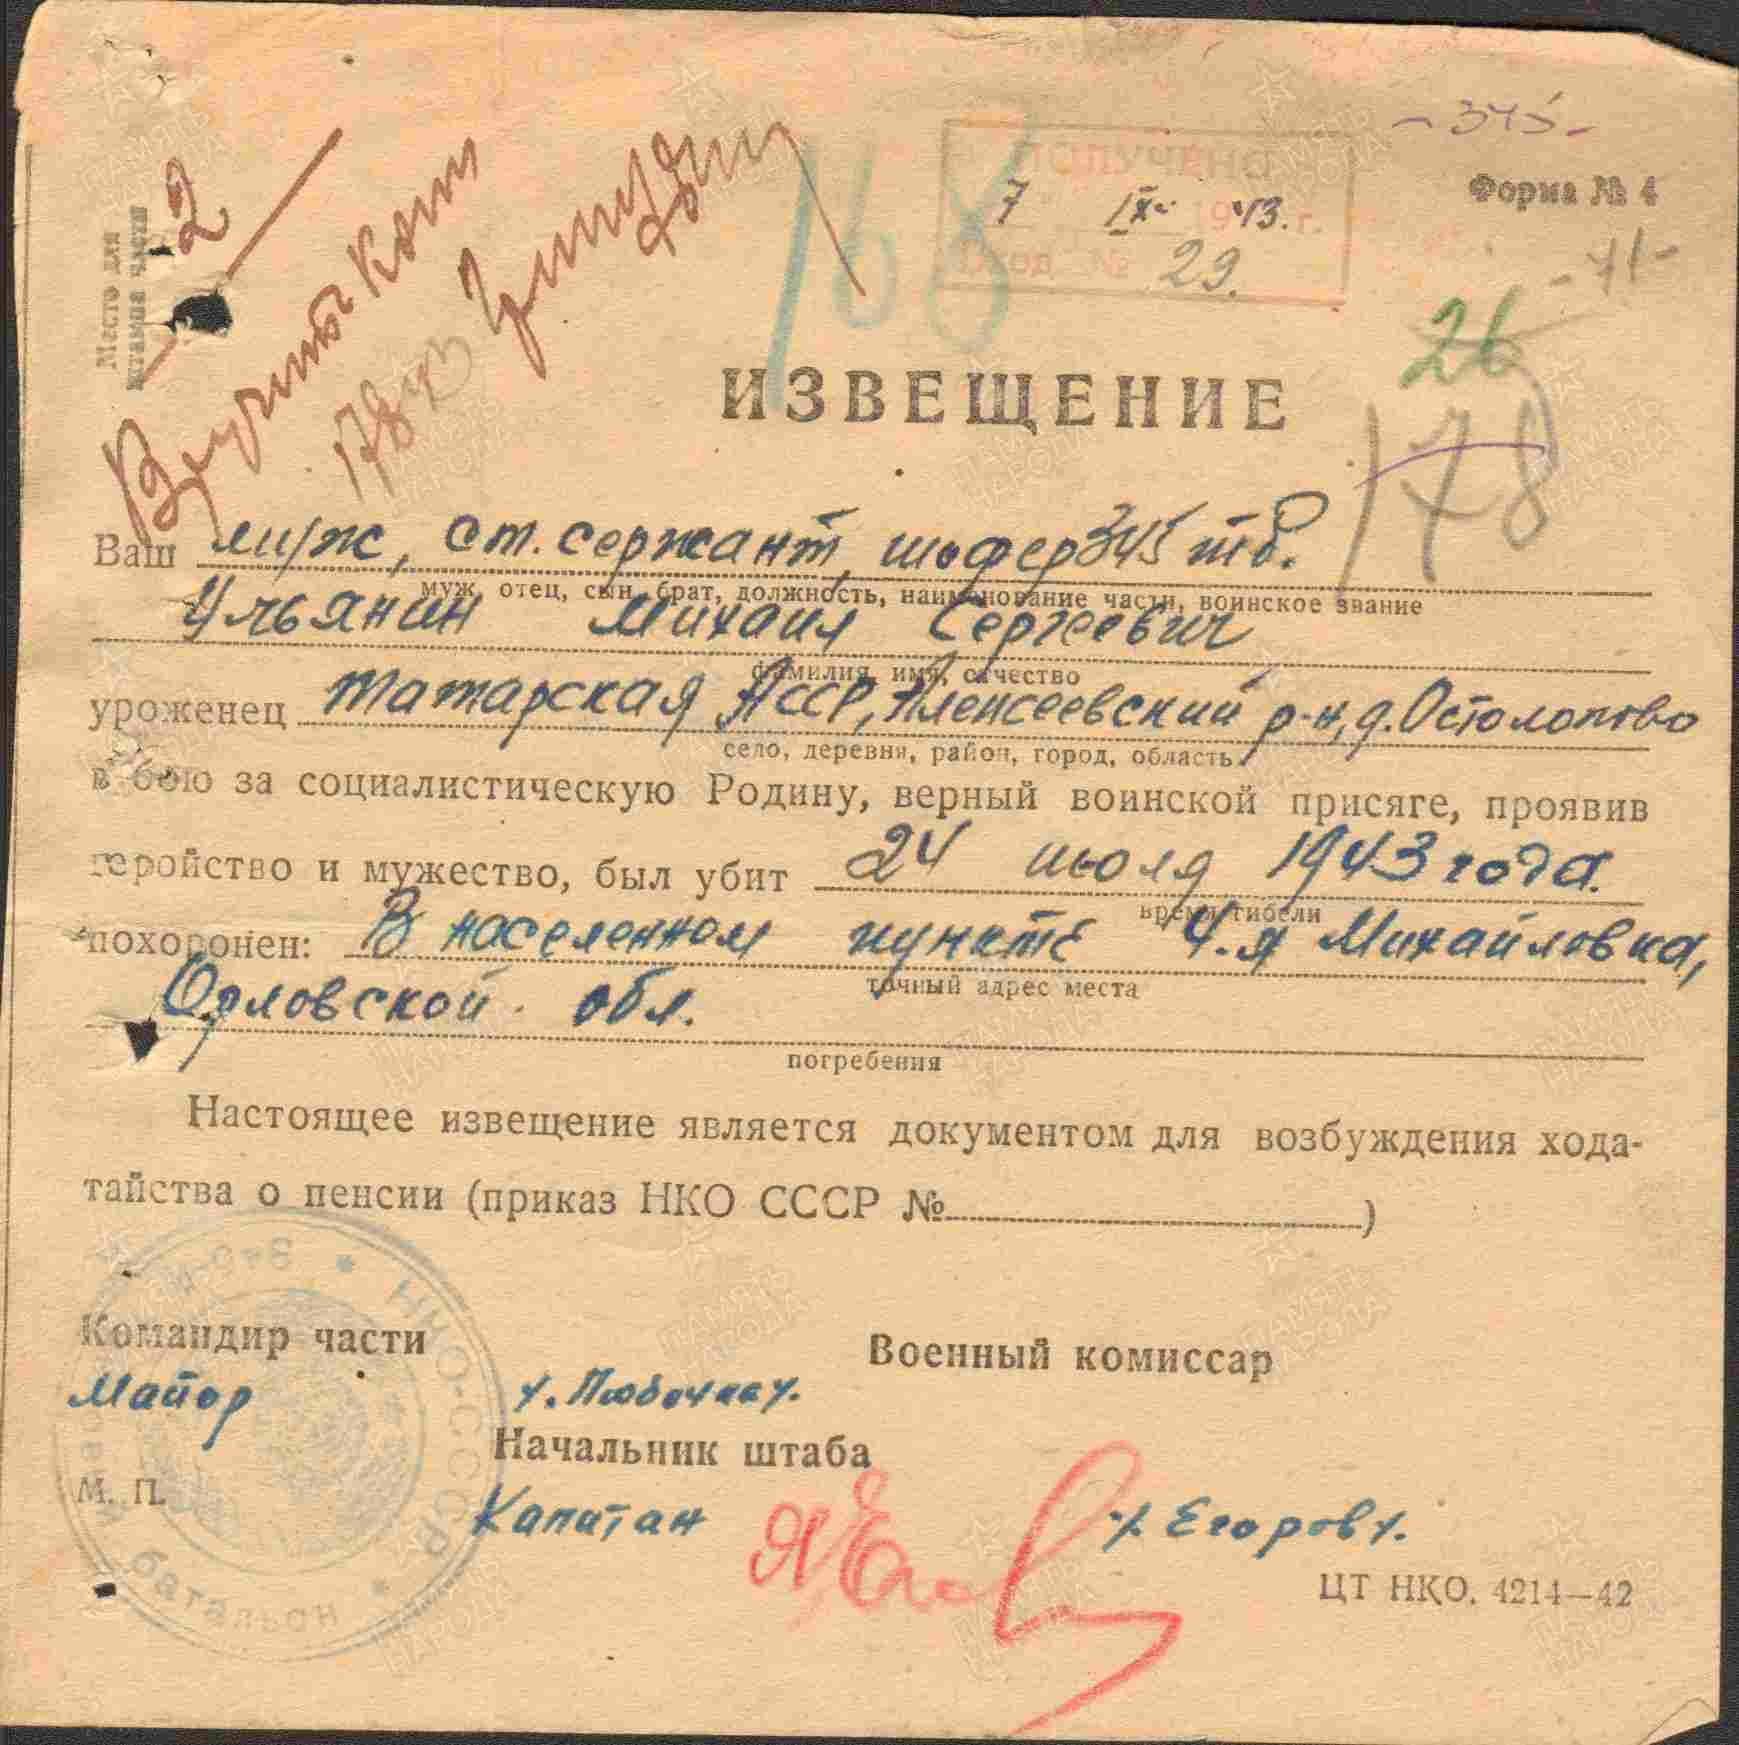 - 345 -
Форма № 4
ПОЛУЧЕНО
7 IX 1943 г.
Вход № 29.
- 71 -
Место для
штампа части
2
Вручить
168
26
178
ИЗВЕЩЕНИЕ
Ваш муж, ст. сержант, шофер 345 тб.
муж, отец, сын, брат, должность, наименование части, воинское звание
Ульянин Михаил Сергеевич
фамилия, имя, отчество
уроженец Татарская АССР, Алексеевский р-н, д. Остолопово
село, деревня, район, город, область
в бою за социалистическую Родину, верный воинской присяге, проявив
геройство и мужество, был убит 24 июля 1943 года.
время гибели
похоронен: В населенном пункте 4-я Михайловка,
точный адрес места
Орловской обл.
погребения
Настоящее извещение является документом для возбуждения хода-
тайства о пенсии (приказ НКО СССР № )
Командир части
Военный комиссар
Майор
Начальник штаба
М. П.
Капитан /Егоров/.
ЦТ НКО. 4214—42
НКО-СССР
батальон
ПАМЯТЬ НАРОДА